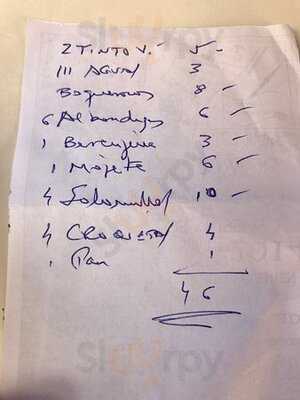 2 TINTO V. 5 -
III AGUAS 3
Boquerones 8 -
6 Albondigas 6 -
1 Berenjena 3 -
1 Mojete 6 -
4 Solomillos 10 -
4 CROQUETAS 4
1 Pan 1
46
Sluurpy